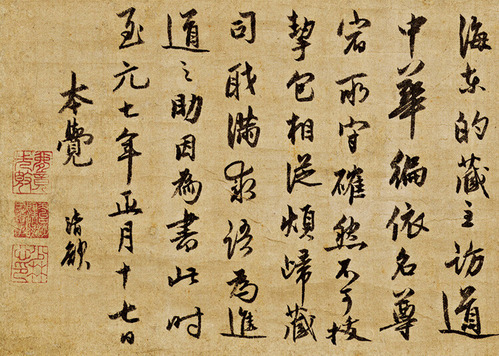 海東的藏主訪道
中華徧依名尊
宿所守確然不可拔
挈包相從煩歸藏
司職滿求語為進
道之助因為書此時
至元七年正月十七日
本覺 清欲